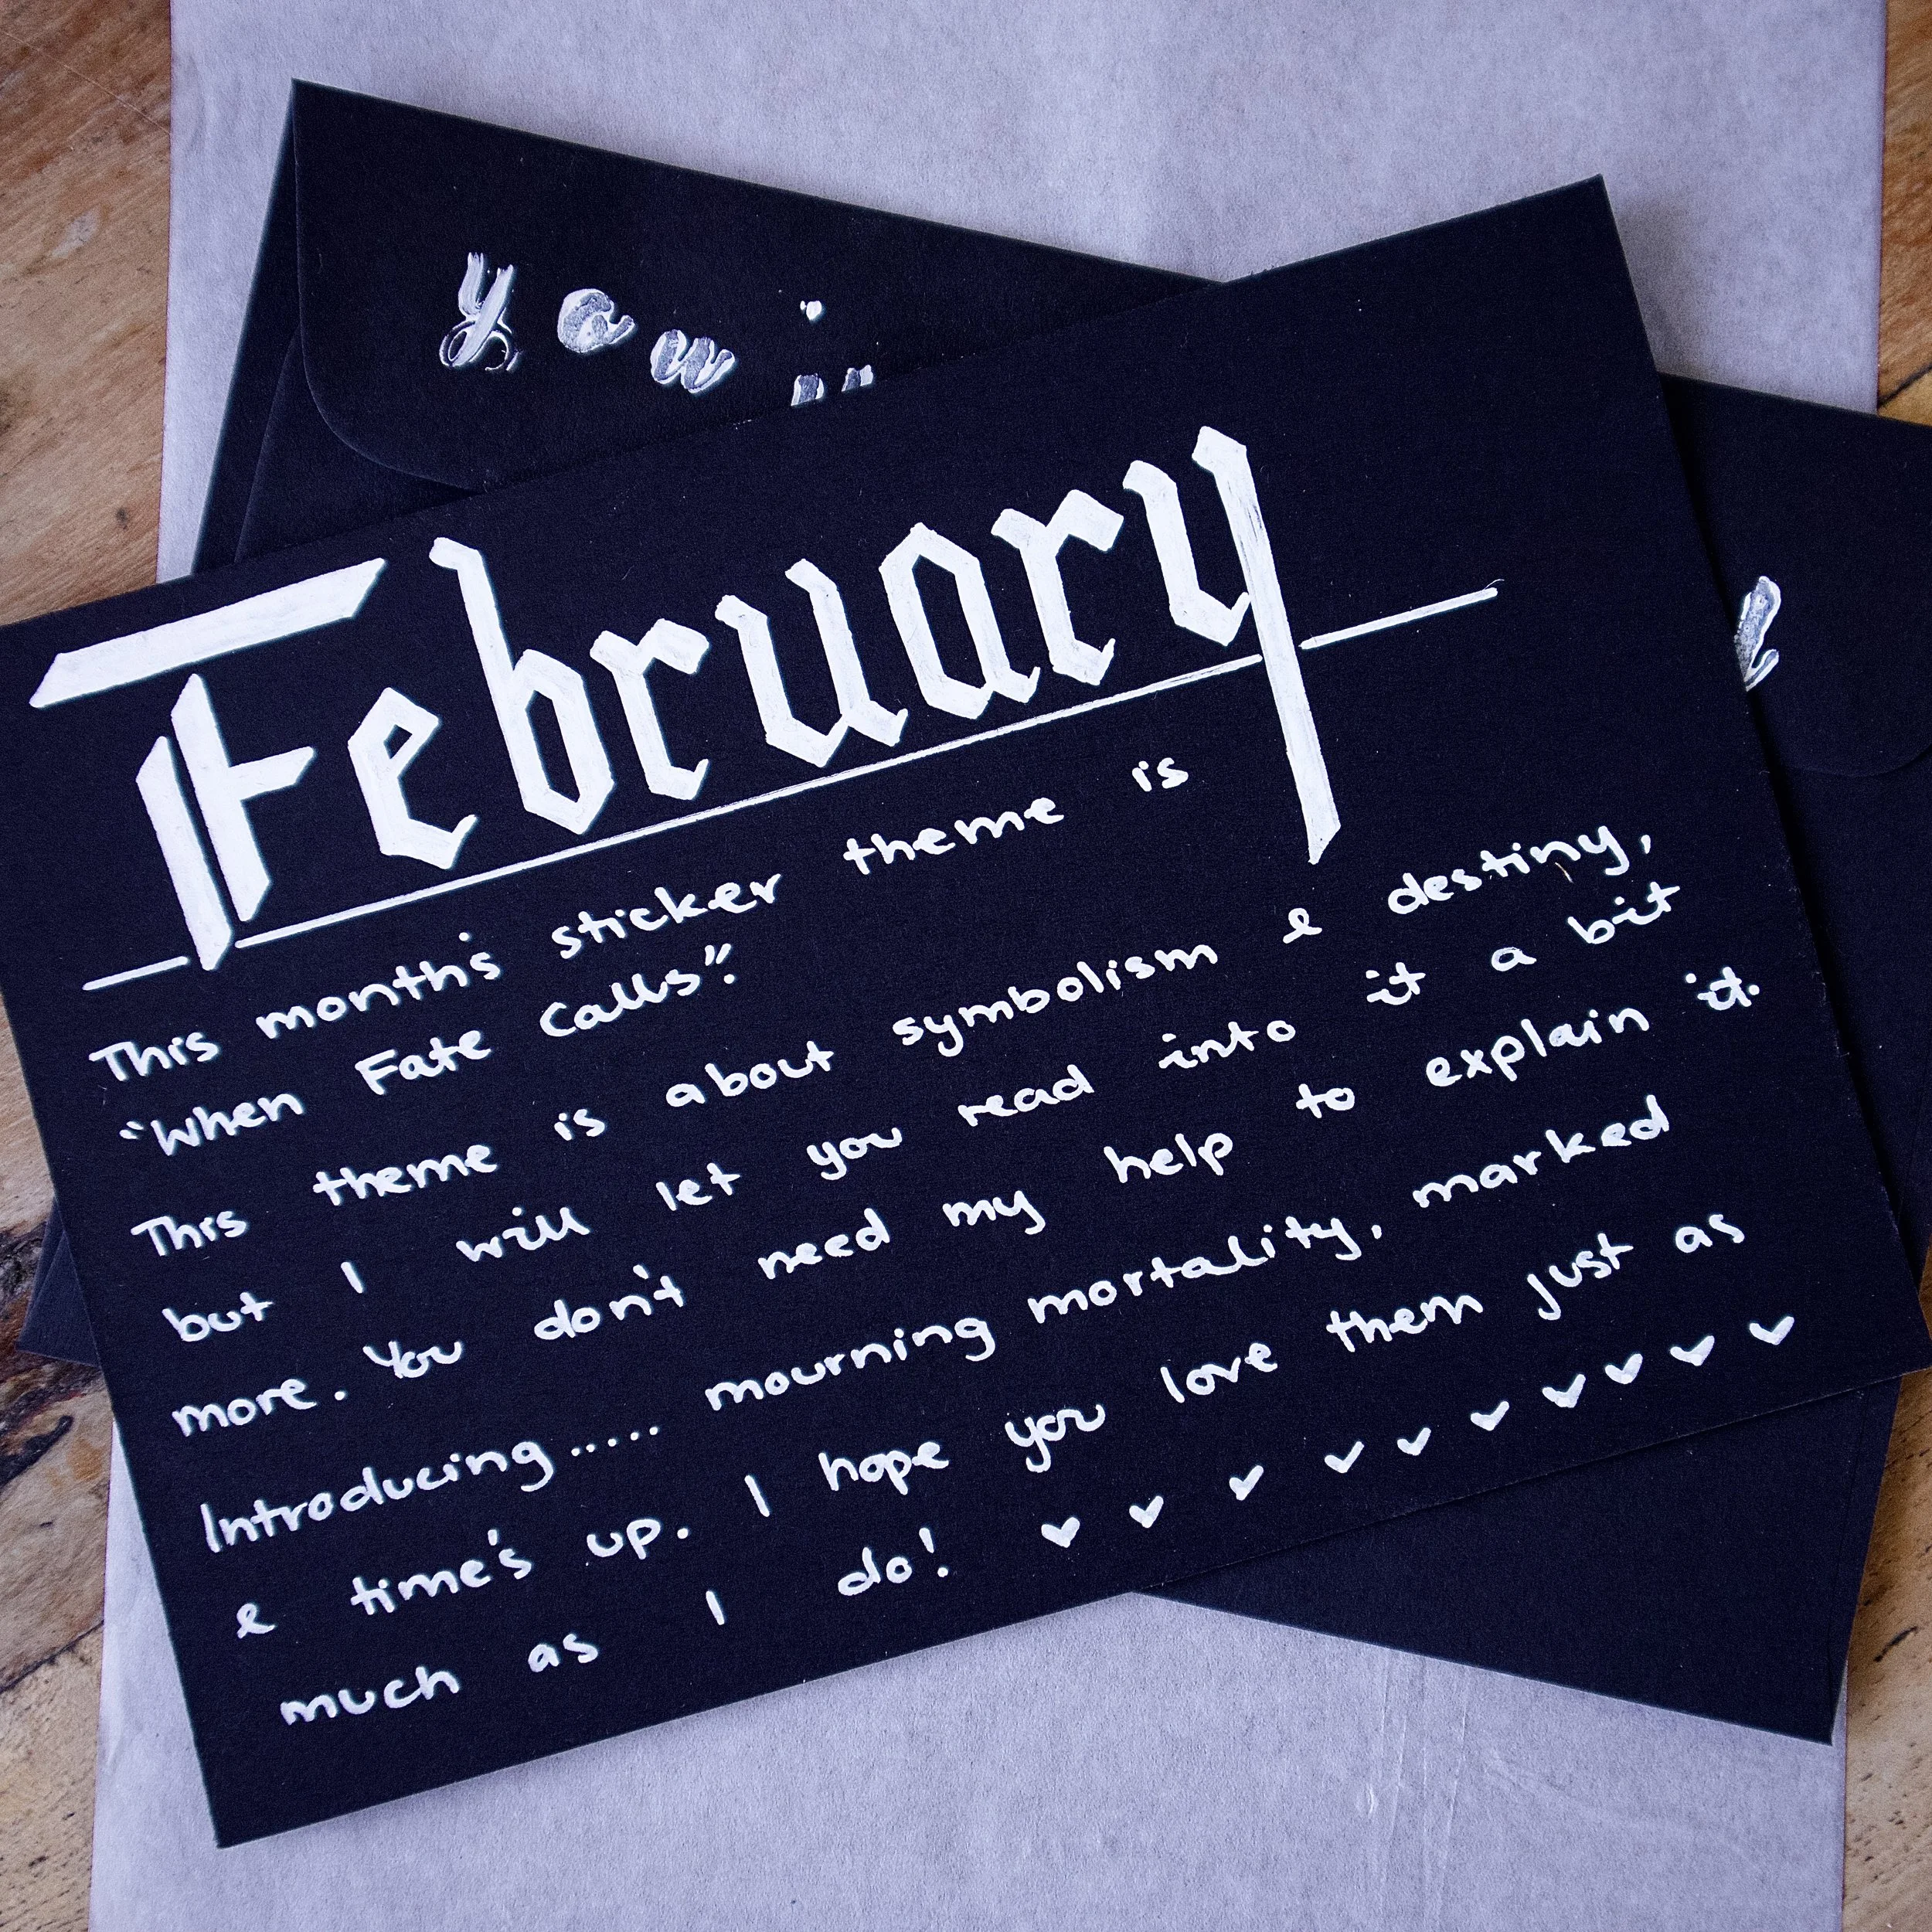 February
This month's sticker theme is
"When Fate Calls".
This theme is about symbolism & destiny,
but I will let you read into it a bit
more. You don't need my help to explain it.
Introducing..... mourning mortality, marked
& time's up. I hope you love them just as
much as I do!